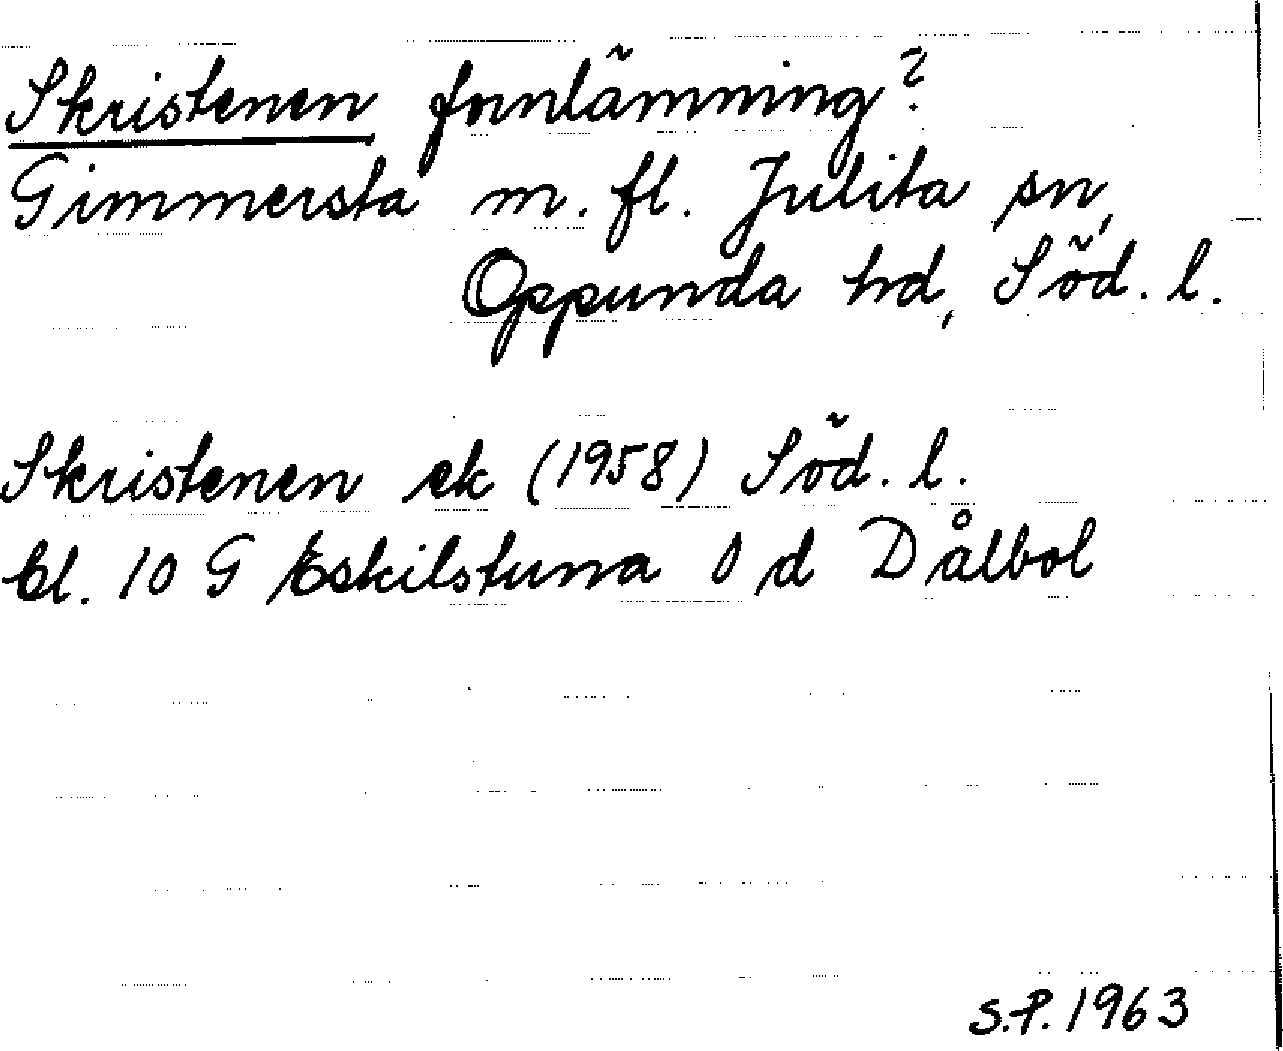 Skristenen fornlämning?
Gimmersta m. fl. Julita sn,
Oppunda hd, Söd. l.
Skristenen ek (1958) Söd. l.
Bl. 10 G Eskilstuna 0 d Dålbol
S.P. 1963